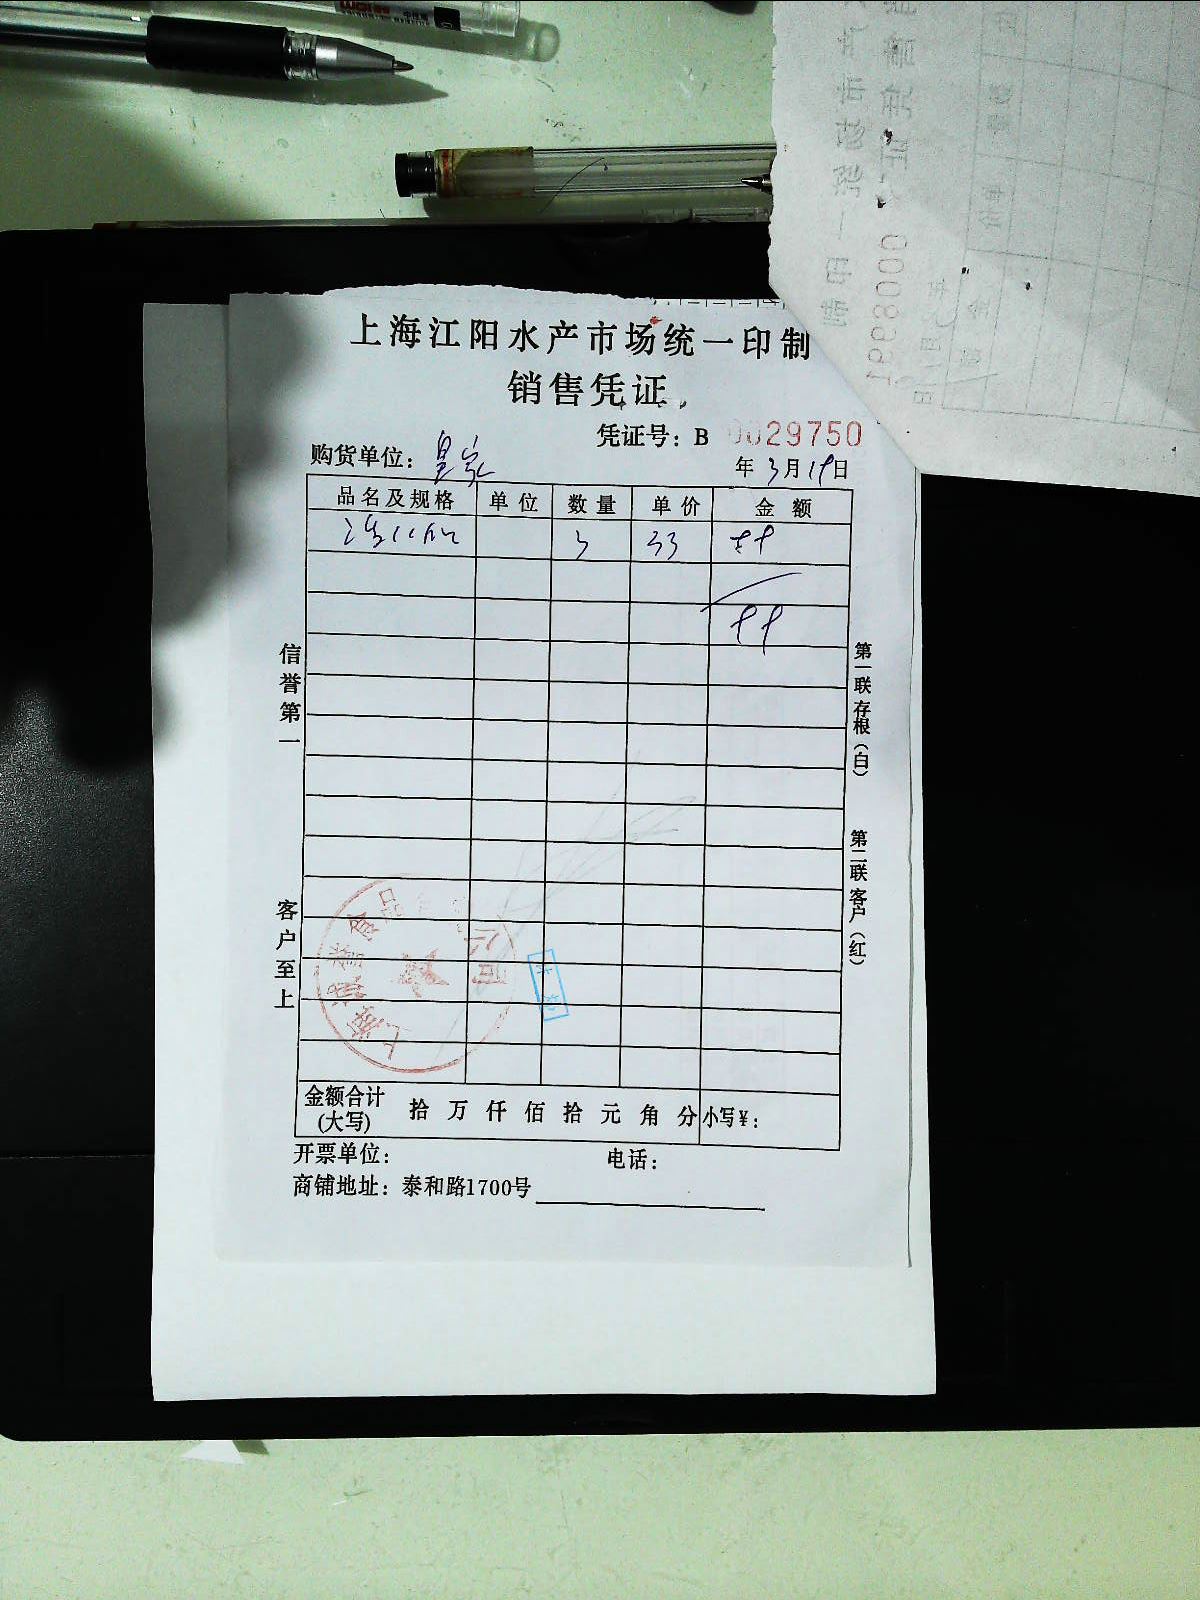 上海江阳水产市场统一印制
销售凭证
凭证号：B 0029750
购货单位：皇家
年 3月19日
品名及规格 单位 数量 单价 金额
3 33 99
99
信誉第一
客户至上
第一联存根（白）
第二联客户（红）
金额合计(大写) 拾 万 仟 佰 拾 元 角 分 小写¥：
开票单位： 电话：
商铺地址：泰和路1700号